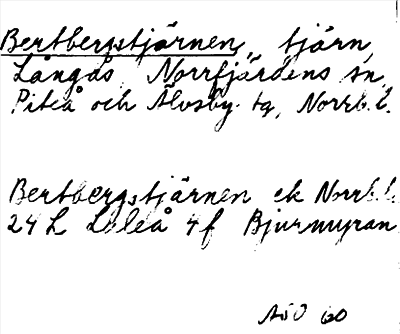 Bertbergstjärnen, tjärn,
Långås, Norrfjärdens sn,
Piteå och Älvsby tg, Norrb.l.
Bertbergstjärnen ek Norrb.l.
24 L Luleå 4f Bjurmyran
ASO 60